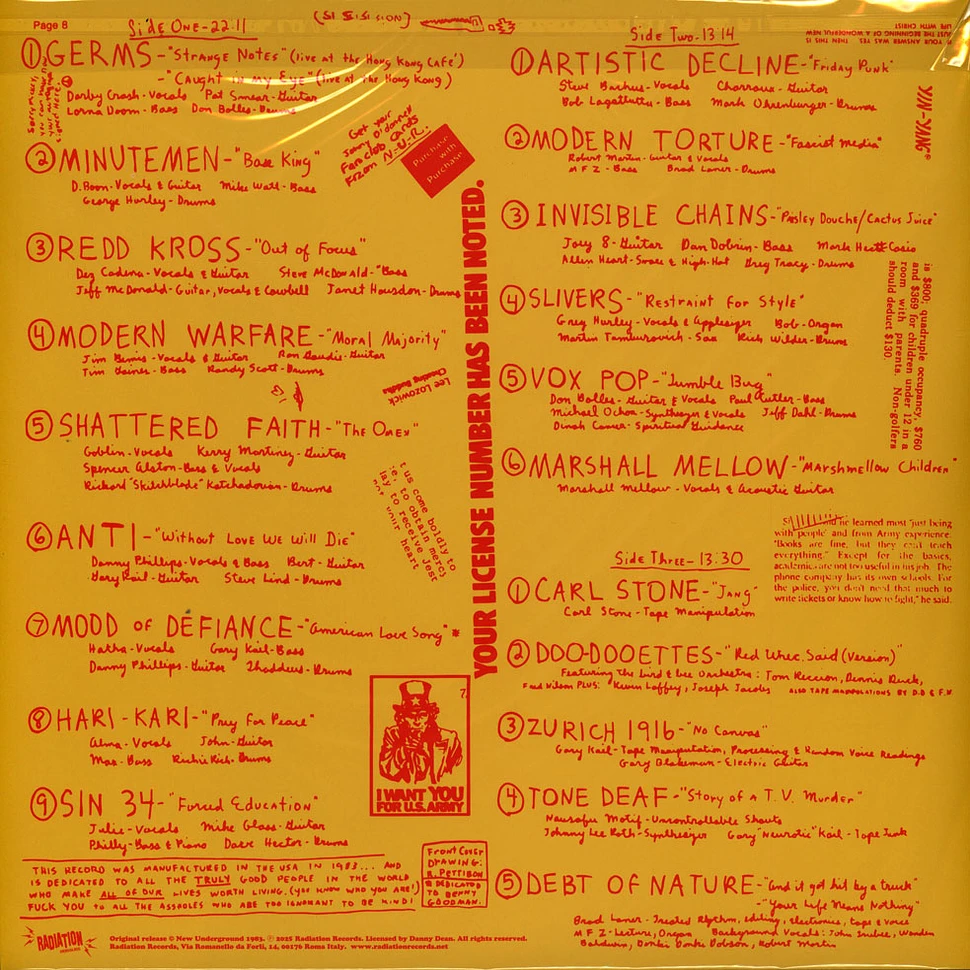 Page 8
Side One-22:11
① GERMS-"Strange Notes" (live at the Hong Kong Cafe')
-"Caught in my Eye" (live at the Hong Kong)
Darby Crash-Vocals Pat Smear-Guitar
Lorna Doom-Bass Don Bolles-Drums
② MINUTEMEN-"Base King"
D. Boon-Vocals & Guitar Mike Watt-Bass
George Hurley-Drums
③ REDD KROSS-"Out of Focus"
Dez Cadena-Vocals & Guitar Steve McDonald-"Bass
Jeff McDonald-Guitar, Vocals & Cowbell Janet Housdon-Drums
④ MODERN WARFARE-"Moral Majority"
Jim Bemis-Vocals & Guitar Ron Goudie-Guitar
Tim Gainer-Bass Randy Scott-Drums
⑤ SHATTERED FAITH-"The Omen"
Goblin-Vocals Kerry Martinez-Guitar
Spencer Alston-Bass & Vocals
Rickard "Skitchblade" Katchadorian-Drums
⑥ ANTI-"Without Love We Will Die"
Danny Phillips-Vocals & Bass Bert-Guitar
Gary Kail-Guitar Steve Lind-Drums
⑦ MOOD of DEFIANCE-"American Love Song"*
Hatha-Vocals Gary Kail-Bass
Danny Phillips-Guitar Thaddeus-Drums
⑧ HARI-KARI-"Pray For Peace"
Alma-Vocals John-Guitar
Max-Bass Richie Rich-Drums
⑨ SIN 34-"Forced Education"
Julie-Vocals Mike Glass-Guitar
Philly-Bass & Piano Dave Hector-Drums
THIS RECORD WAS MANUFACTURED IN THE USA IN 1983... AND
IS DEDICATED TO ALL THE TRULY GOOD PEOPLE IN THE WORLD
WHO MAKE ALL OF OUR LIVES WORTH LIVING. (YOU KNOW WHO YOU ARE!)
FUCK YOU TO ALL THE ASSHOLES WHO ARE TOO IGNORANT TO BE KIND!
Front Cover
DRAWING:
R. PETTIBON
* DEDICATED
TO BENNY
GOODMAN.
RADIATION
Original release © New Underground 1983. ℗ 2025 Radiation Records. Licensed by Danny Dean. All rights reserved.
Radiation Records, Via Romanello da Forlì, 14, 00176 Roma Italy. www.radiationrecords.net
Get your
Jonny O'donnell
Fan club cards
from N.U.R.
Purchase
with
Purchase
Lee Lozowick
Chasing Buddha
t us come boldly to
e, to obtain mercy
lay to receive Jest
your heart
YOUR LICENSE NUMBER HAS BEEN NOTED.
7.
I WANT YOU
FOR U.S. ARMY
Side Two-13:14
① ARTISTIC DECLINE-"Friday Punk"
Steve Backus-Vocals Charrous-Guitar
Bob Lagattutta-Bass Mark Ohrenburger-Drums
② MODERN TORTURE-"Fascist Media"
Robert Martin-Guitar & Vocals
MFZ-Bass Brad Laner-Drums
③ INVISIBLE CHAINS-"Paisley Douche/Cactus Juice"
Joey 8-Guitar Dan Dobrin-Bass Mark Hecht-Casio
Allen Heart-Snare & High-Hat Greg Tracy-Drums
④ SLIVERS-"Restraint for Style"
Greg Hurley-Vocals & Applesizer Bob-Organ
Martin Tamburovich-Sax Rich Wilder-Drums
⑤ VOX POP-"Jumble Bug"
Don Bolles-Guitar & Vocals Paul Cutler-Bass
Michael Ochoa-Synthesizer & Vocals Jeff Dahl-Drums
Dinah Cancer-Spiritual Guidance
⑥ MARSHALL MELLOW-"Marshmellow Children"
Marshall Mellow-Vocals & Acoustic Guitar
YIN-YANG
IF YOUR ANSWER WAS YES, THEN THIS IS
JUST THE BEGINNING OF A WONDERFUL NEW
LIFE WITH CHRIST
is $800; quadruple occupancy, $760
and $369 for children under 12 in a
room with parents. Non-golfers
should deduct $130.
he learned most "just being
with people" and from Army experience.
"Books are fine, but they can't teach
everything." Except for the basics,
academics are not too useful in his job. The
phone company has its own schools. For
the police, you don't need that much to
write tickets or know how to fight," he said.
Side Three-13:30
① CARL STONE-"Jang"
Carl Stone-Tape Manipulation
② DOO-DOOETTES-"Red Whec. Said (Version)"
Featuring the bird & bee Orchestra: Tom Recchion, Dennis Duck,
Fred Nilsen PLUS: Kevin Laffey, Joseph Jacobs ALSO TAPE MANIPULATIONS BY D.D & F.N
③ ZURICH 1916-"No Canvas"
Gary Kail-Tape Manipulation, Processing & Random Voice Readings
Gary Blakeman-Electric Guitar
④ TONE DEAF-"Story of a T.V. Murder"
Nausafus Motif-Uncontrollable Shouts
Johnny Lee Roth-Synthesizer Gary "Neurotic" Kail-Tape Junk
⑤ DEBT OF NATURE-"and it got hit by a truck"
-"Your Life Means Nothing"
Brad Laner-Treated Rhythm, editing, electronics, tape & voice
MFZ-Lecture, Organ Background Vocals: John Trubee, Wonden
Baldwin, Donki Donki Dobson, Robert Martin